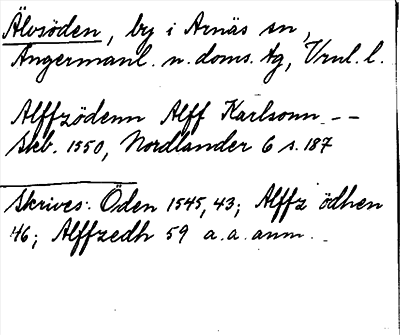 Älvsöden, by i Arnäs sn,
Ångermanl. n. doms. tg, Vrnl. l.
Alffzödenn Alff Karlsonn --
Skb. 1550, Nordlander 6 s. 187
Skrives: Öden 1545, 43; Alffz ödhen
46; Alffzedh 59 a.a. anm.